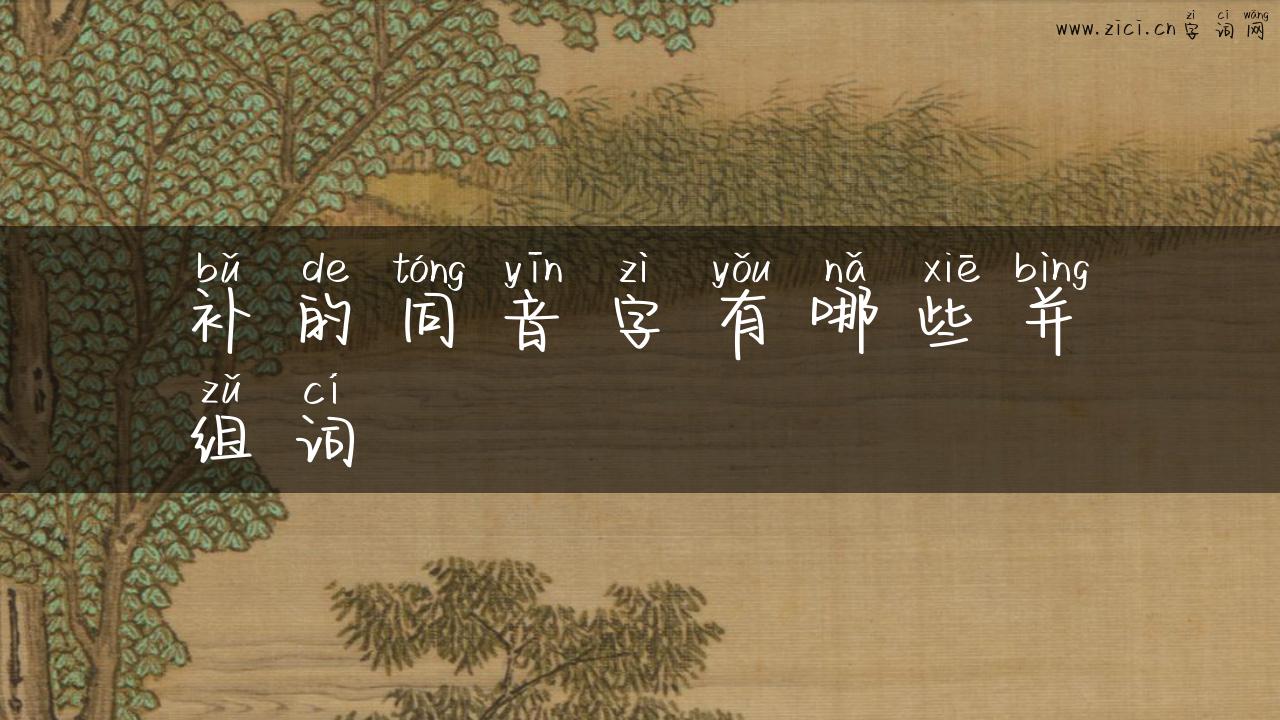 zì cí wǎng
www.zici.cn字词网
bǔ de tóng yīn zì yǒu nǎ xiē bìng
补的同音字有哪些并
zǔ cí
组词